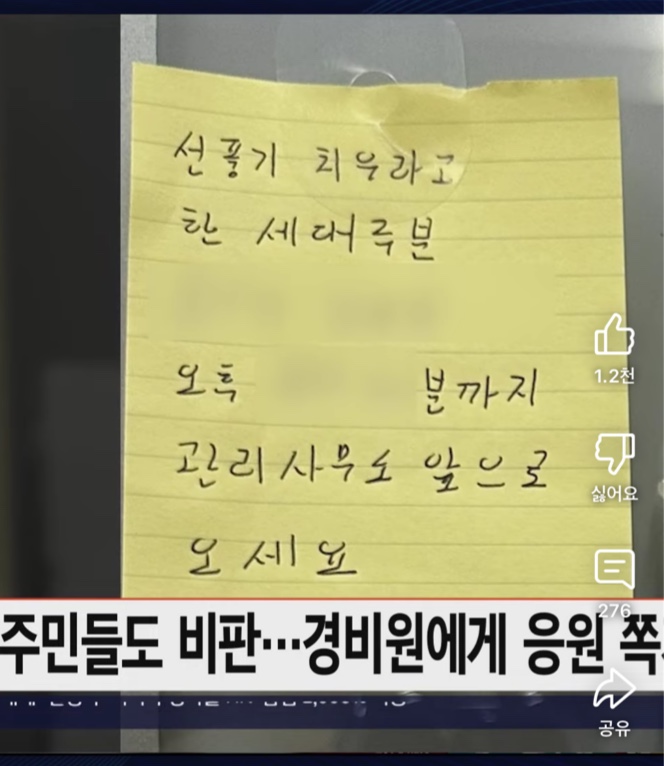 선풍기 치우라고
한 세대주분
오후 분까지
관리사무소 앞으로
오세요
1.2천
싫어요
276
공유
주민들도 비판…경비원에게 응원